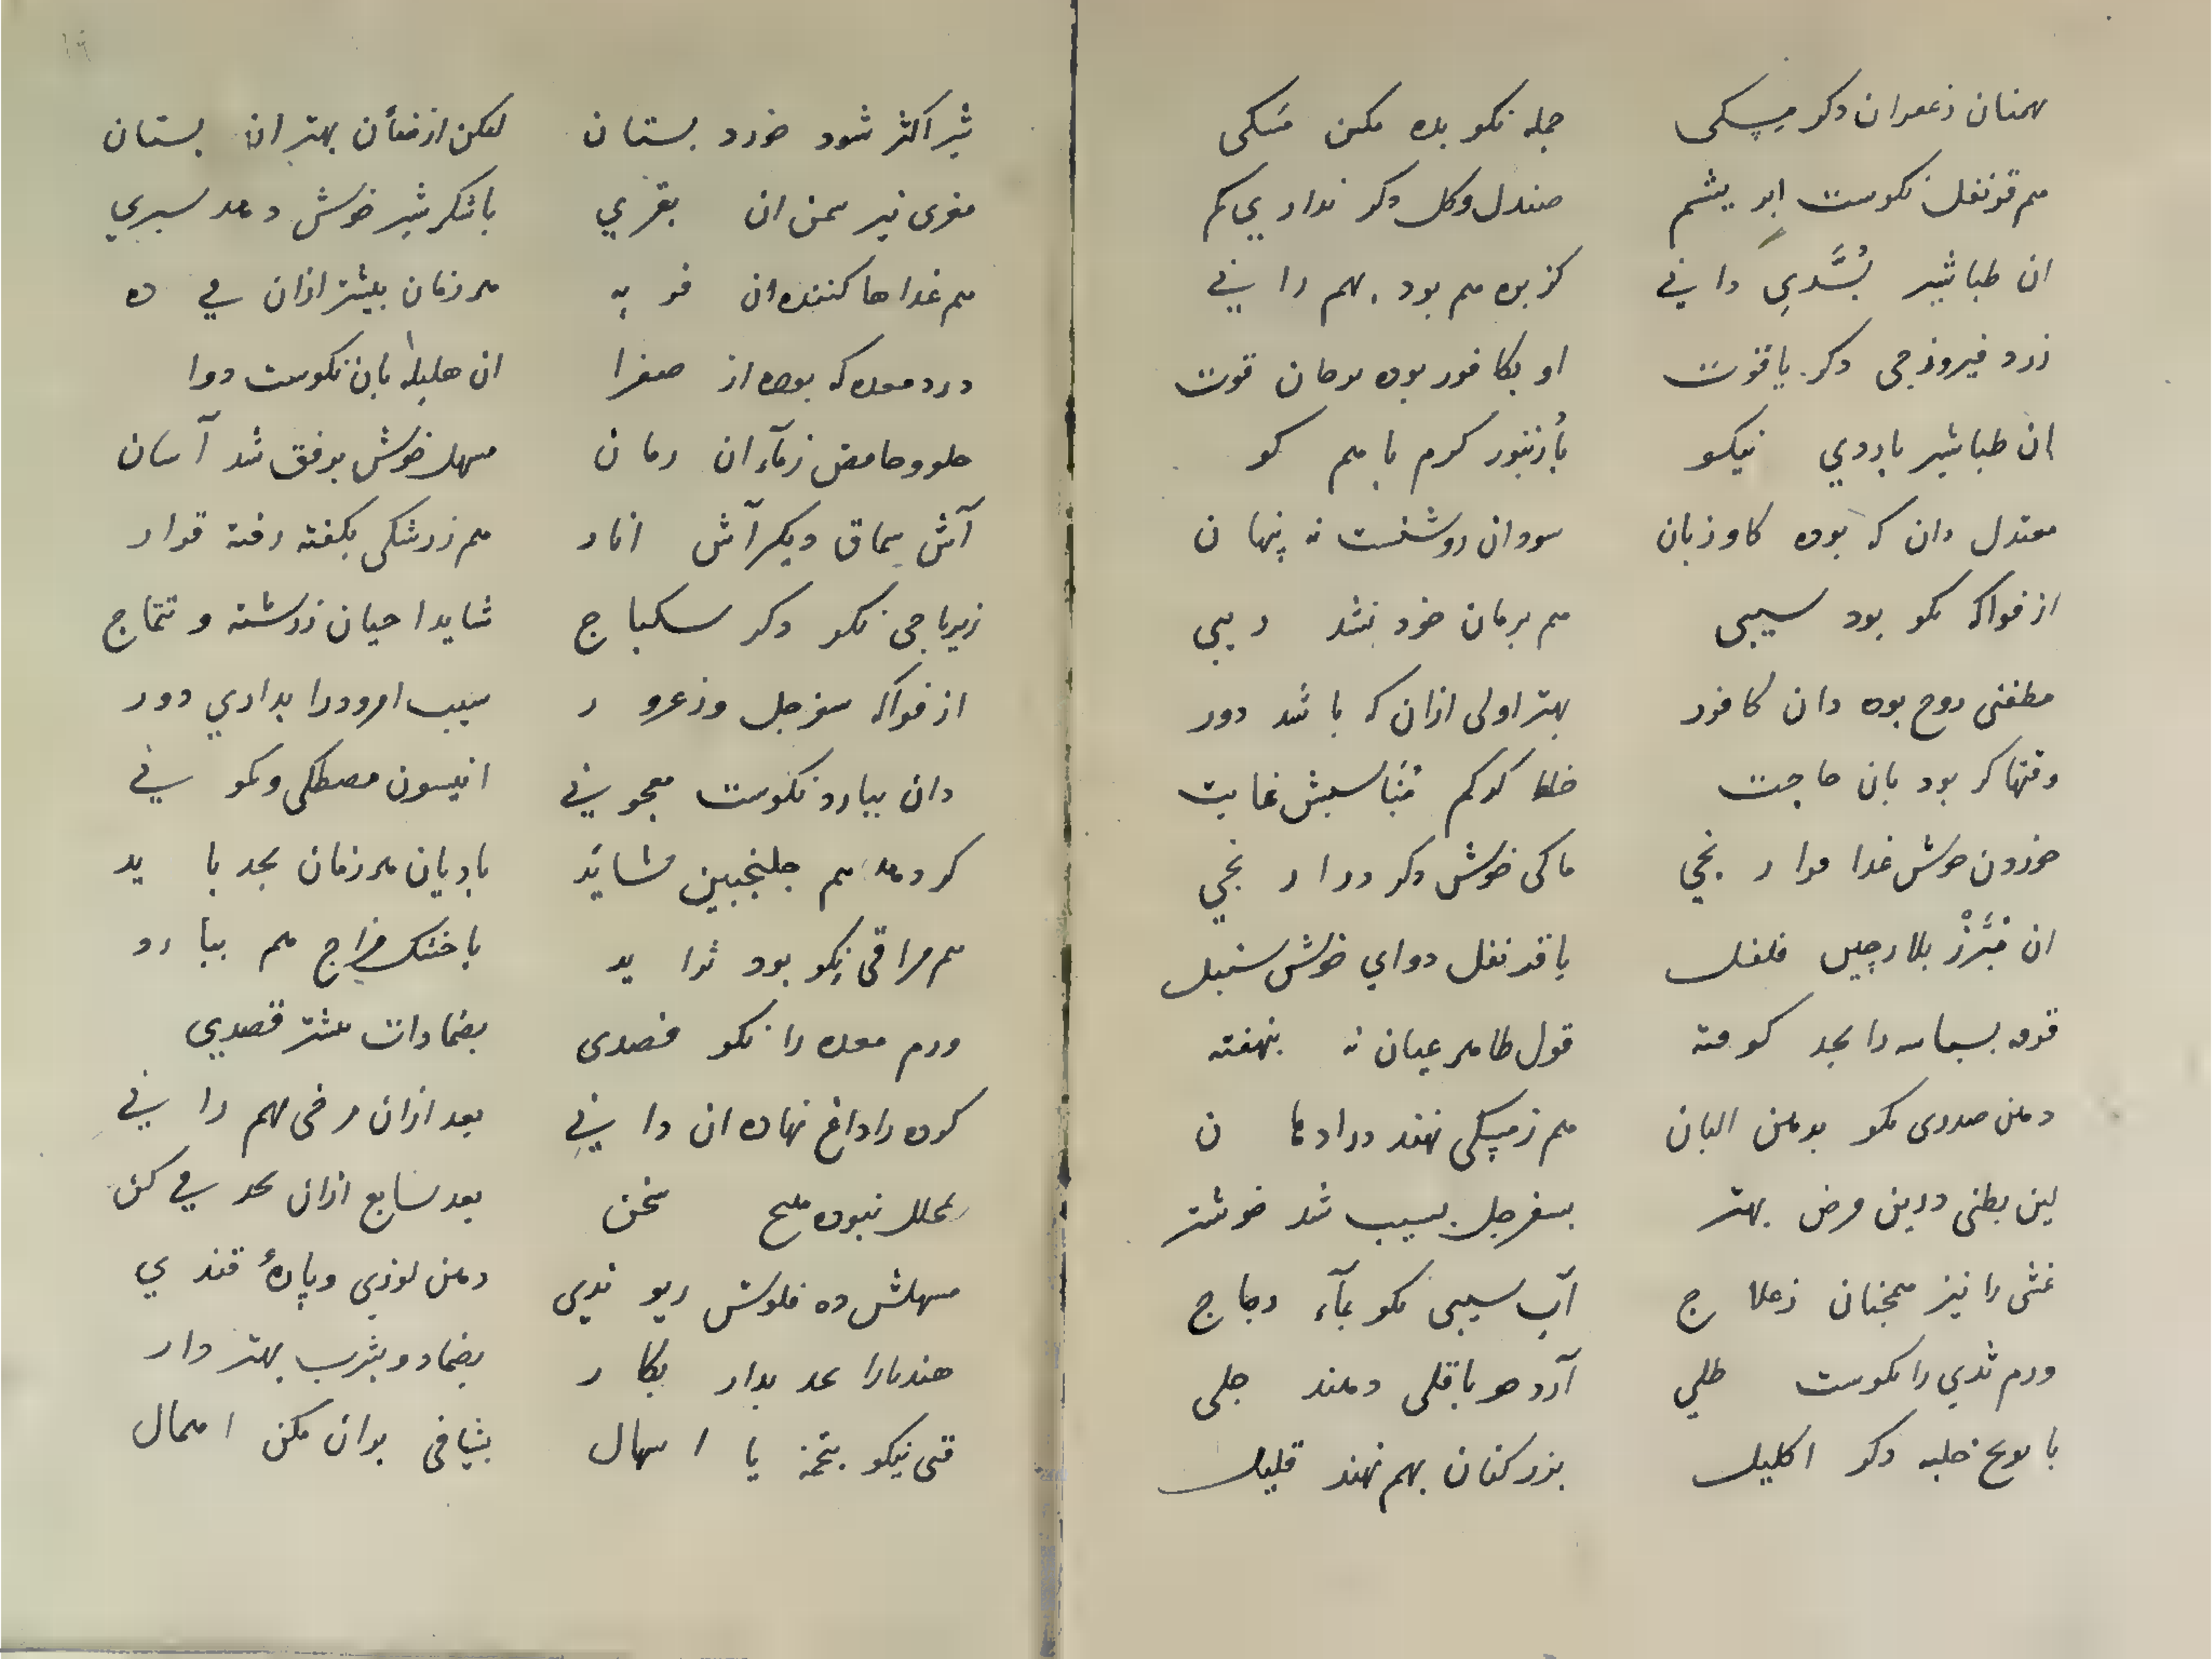 بهمنان زعفران دکر مِسکی جمله نکو بده مکن مَسکی
هم قرنفل نکوست ابریشم صندل وکل دکر نداری کم
ان طباشیر بُسَّدیِ دانی کزبره هم بود بهم رانی
زرد فیروزجی دکر یاقوت او بکافور بوده قوت
ان طباشیر باردی نیکو کرم با هم کو
معتدل دان که بوده کاوزبان سودان روشنست نه پنهان
از فواکه نکو بود سیبی هم برمان خود نشد ریبی
مطفئی روح بوده دان کافور بهتر اولی ازان که باشد دور
وقتها کر بود بان حاجت غایت
خوردن خوش غدا دکر
ان بلادر فلفل باقرنفل دوای خوش سنبل
قرفه بسباسه را بجد کوفته قول ظاهر عیان نه بنهفته
دهن صدری نکو بدهن البان هم زمسکی نهند در ادهان
لین بطنی درین مرض بهتر بسفرجل بسیب شد خوشتر
غثی را نیز همچنان زعلاج آب سیبی نکو بمآء دجاج
ورم ثدی را نکوست طلی آرد جو باقلی دهند جلی
بابونج حلبه دکر اکلیل بزر کتان بهم نهند قلیل
شیر اکثر شود خورد بستان لیکن از ضأن بهتر ان بستان
مغزی نیز سمن ان بقری باشکر شیر خوش دهد سیری
هم غداها کننده ان فربه هر زمان بیشتر ازان می ده
درد معده که بوده از صفرا ان هلیله بان نکوست دوا
حلو وحامض زمآء ان رمان مسهل خوش برفق شد آسان
آش سماق دیکر آش انار هم زرشکی بکفته رفته قرار
زیرباجی نکو دکر سکباج شاید احیان زرشته و تتماج
از فواکه سفرجل وزعرور سیب امرود را بداری دور
دان ببارد نکوست معجونی انیسون مصطکی ونکو نی
کر دهد هم جلنجبین شاید بادیان هر زمان بجد باید
هم مراقی نکو بود باخشک مزاج هم ببارد
ورم معده را نکو فصدی بضمادات قصدی
کرده را داغ نهاده ان دانی بعد ازان مرخی بهم رانی
محلل نبوده سخن بعد سابع ازان بجد می کن
مسهلش ده فلوس ریوندی دهن لوزی وپارهٔ قندی
هندبا را بجد بدار بکار بضماد و بشرب بهتر دار
قی نیکو بتخمه یا اسهال بشیافی بران مکن اهمال